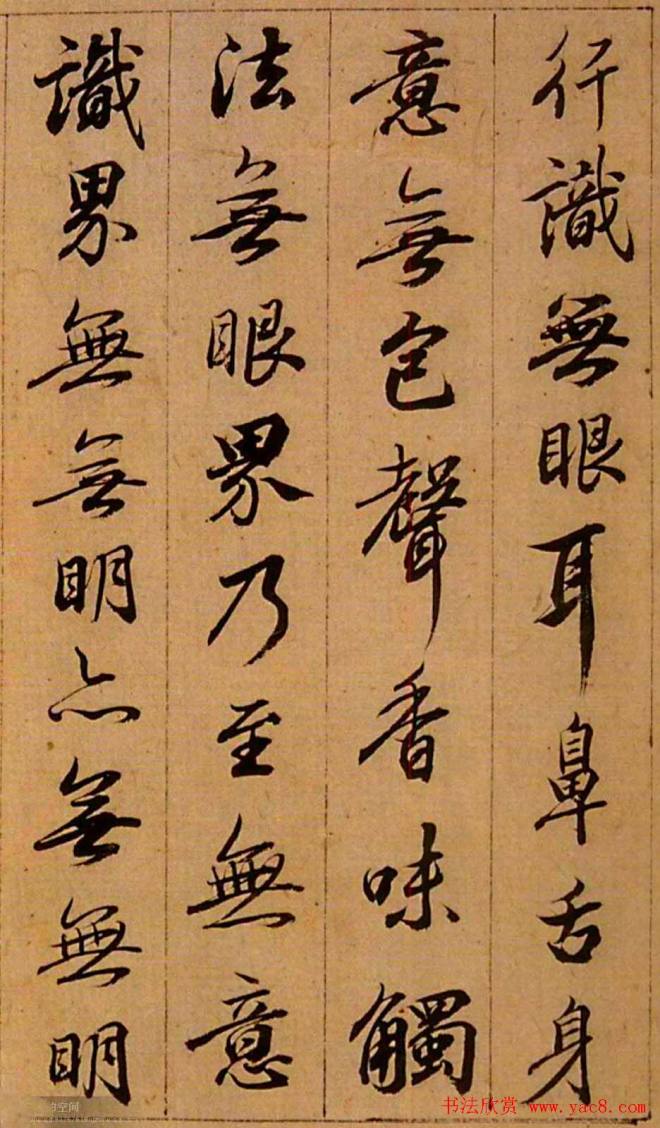 行識無眼耳鼻舌身
意無色聲香味觸
法無眼界乃至無意
識界無無明亦無無明
的空间
书法欣赏 www.yac8.com